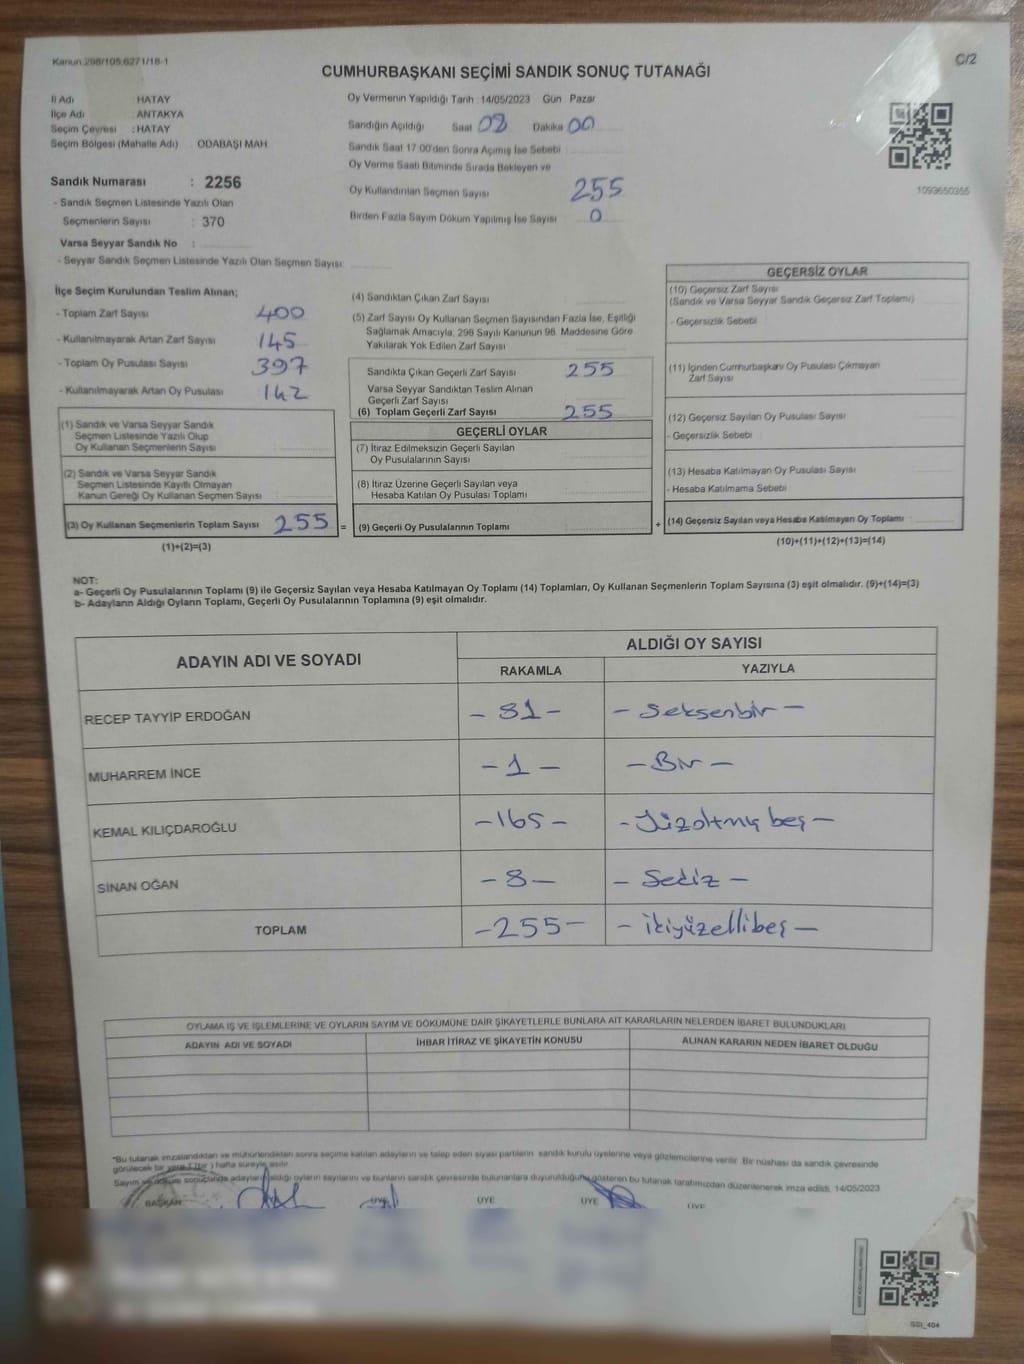 Kanun:298/105;6271/18-1
C/2
CUMHURBAŞKANI SEÇİMİ SANDIK SONUÇ TUTANAĞI
İl Adı : HATAY
İlçe Adı : ANTAKYA
Seçim Çevresi : HATAY
Seçim Bölgesi (Mahalle Adı) ODABAŞI MAH.
Oy Vermenin Yapıldığı Tarih : 14/05/2023 Gün Pazar
Sandığın Açıldığı Saat 08 Dakika 00
Sandık Saat 17:00'den Sonra Açılmış İse Sebebi :
Oy Verme Saati Bitiminde Sırada Bekleyen ve
Oy Kullandırılan Seçmen Sayısı 255
Birden Fazla Sayım Döküm Yapılmış İse Sayısı 0
1093650355
Sandık Numarası : 2256
- Sandık Seçmen Listesinde Yazılı Olan
Seçmenlerin Sayısı : 370
Varsa Seyyar Sandık No :
- Seyyar Sandık Seçmen Listesinde Yazılı Olan Seçmen Sayısı:
İlçe Seçim Kurulundan Teslim Alınan;
- Toplam Zarf Sayısı 400
- Kullanılmayarak Artan Zarf Sayısı 145
- Toplam Oy Pusulası Sayısı 397
- Kullanılmayarak Artan Oy Pusulası 142
(1) Sandık ve Varsa Seyyar Sandık
Seçmen Listesinde Yazılı Olup
Oy Kullanan Seçmenlerin Sayısı
(2) Sandık ve Varsa Seyyar Sandık
Seçmen Listesinde Kayıtlı Olmayan
Kanun Gereği Oy Kullanan Seçmen Sayısı
(3) Oy Kullanan Seçmenlerin Toplam Sayısı 255 =
(1)+(2)=(3)
(4) Sandıktan Çıkan Zarf Sayısı
(5) Zarf Sayısı Oy Kullanan Seçmen Sayısından Fazla İse, Eşitliği
Sağlamak Amacıyla, 298 Sayılı Kanunun 98. Maddesine Göre
Yakılarak Yok Edilen Zarf Sayısı
Sandıkta Çıkan Geçerli Zarf Sayısı 255
Varsa Seyyar Sandıktan Teslim Alınan
Geçerli Zarf Sayısı
(6) Toplam Geçerli Zarf Sayısı 255
GEÇERLİ OYLAR
(7) İtiraz Edilmeksizin Geçerli Sayılan
Oy Pusulalarının Sayısı
(8) İtiraz Üzerine Geçerli Sayılan veya
Hesaba Katılan Oy Pusulası Toplamı
(9) Geçerli Oy Pusulalarının Toplamı +
GEÇERSİZ OYLAR
(10) Geçersiz Zarf Sayısı
(Sandık ve Varsa Seyyar Sandık Geçersiz Zarf Toplamı)
- Geçersizlik Sebebi
(11) İçinden Cumhurbaşkanı Oy Pusulası Çıkmayan
Zarf Sayısı
(12) Geçersiz Sayılan Oy Pusulası Sayısı
- Geçersizlik Sebebi
(13) Hesaba Katılmayan Oy Pusulası Sayısı
- Hesaba Katılmama Sebebi
(14) Geçersiz Sayılan veya Hesaba Katılmayan Oy Toplamı
(10)+(11)+(12)+(13)=(14)
NOT:
a- Geçerli Oy Pusulalarının Toplamı (9) ile Geçersiz Sayılan veya Hesaba Katılmayan Oy Toplamı (14) Toplamları, Oy Kullanan Seçmenlerin Toplam Sayısına (3) eşit olmalıdır. (9)+(14)=(3)
b- Adayların Aldığı Oyların Toplamı, Geçerli Oy Pusulalarının Toplamına (9) eşit olmalıdır.
ADAYIN ADI VE SOYADI
ALDIĞI OY SAYISI
RAKAMLA YAZIYLA
RECEP TAYYİP ERDOĞAN - 81 - - Seksenbir -
MUHARREM İNCE - 1 - - Bir -
KEMAL KILIÇDAROĞLU - 165 - - Yüzaltmış beş -
SİNAN OĞAN - 8 - - Sekiz -
TOPLAM - 255 - - ikiyüzellibeş -
OYLAMA İŞ VE İŞLEMLERİNE VE OYLARIN SAYIM VE DÖKÜMÜNE DAİR ŞİKAYETLERLE BUNLARA AİT KARARLARIN NELERDEN İBARET BULUNDUKLARI
ADAYIN ADI VE SOYADI İHBAR İTİRAZ VE ŞİKAYETİN KONUSU ALINAN KARARIN NEDEN İBARET OLDUĞU
"Bu tutanak imzalandıktan ve mühürlendikten sonra seçime katılan adayların ve talep eden siyasi partilerin sandık kurulu üyelerine veya gözlemcilerine verilir. Bir nüshası da sandık çevresinde
görülecek bir yere 1 (bir ) hafta süreyle asılır.
Sayım ve döküm sonucunda adayların aldığı oyların sayılarını ve bunların sandık çevresinde bulunanlara duyurulduğunu gösteren bu tutanak tarafımızdan düzenlenerek imza edildi. 14/05/2023
BAŞKAN ÜYE ÜYE ÜYE ÜYE
SSI_404